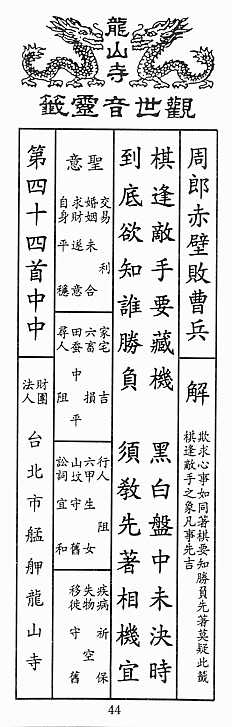 龍山寺
觀世音靈籤
周郎赤壁敗曹兵
解
欺求心事如同著棋要知勝員先著莫疑此籤
棋逢敵手之象凡事先吉
棋逢敵手要藏機 黑白盤中未決時
到底欲知誰勝負 須教先著相機宜
聖意
交易 利
婚姻 未合
求財 遂意
自身 平穩
家宅 吉
六畜 損
田蚕 中平
尋人 阻
行人 阻
六甲 生女
山坟 守舊
訟詞 宜和
疾病 祈保
失物 空
移徙 守舊
第四十四首中中
財團
法人
台北市艋舺龍山寺
44